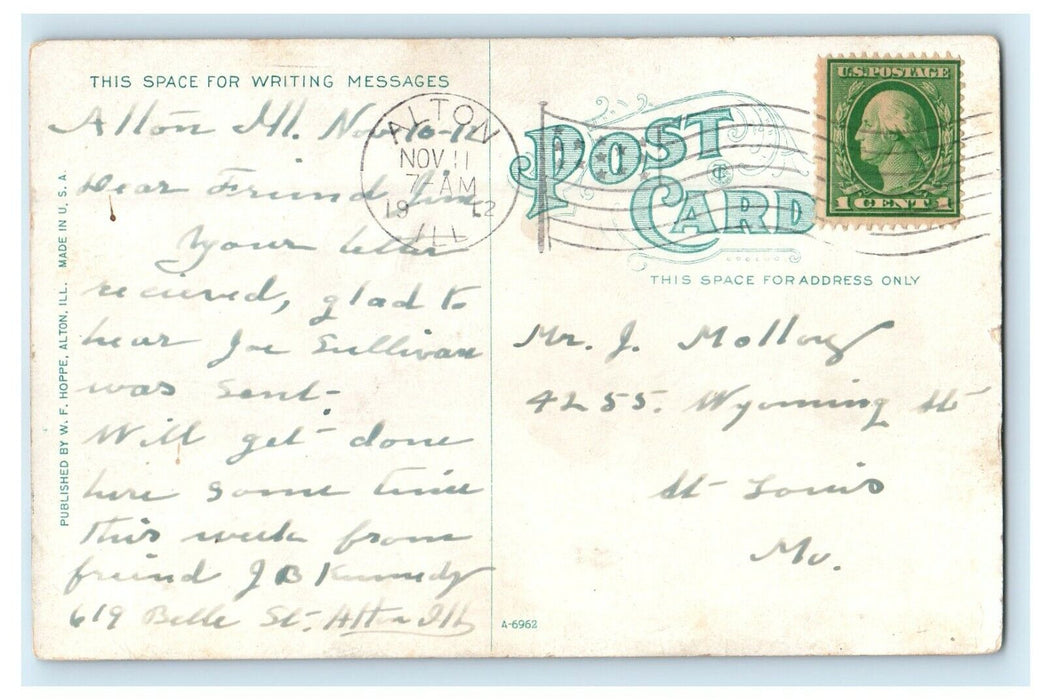 THIS SPACE FOR WRITING MESSAGES
Alton Ill. Nov 10-12
Dear Freind Jim
Your letter
recieved, glad to
hear Joe Sullivan
was sent-
Will get done
here some time
this week from
freind J B Kennedy
619 Belle St. Alton Ill
PUBLISHED BY W. F. HOPPE, ALTON, ILL. MADE IN U. S. A.
ALTON
NOV 11
7-AM
19 12
ILL
POST
CARD
U.S. POSTAGE
1 CENT 1
THIS SPACE FOR ADDRESS ONLY
Mr. J. Molloy
4255. Wyoming St
St Louis
Mo.
A-6962